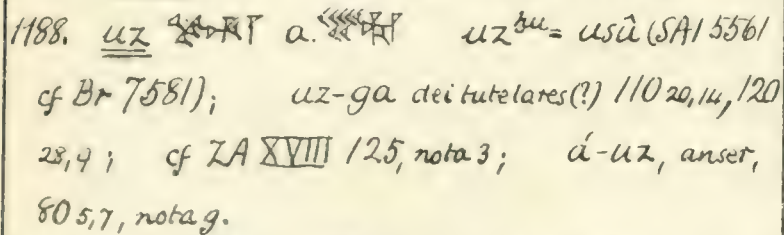 1188. uz a. uz ḫu = usû (SAI 5561
cf Br 7581); uz-ga dei tutelares (?) 110 20,14, 120
28,9; cf ZA XVIII 125, nota 3; á-uz, anser,
80 5,7, nota g.